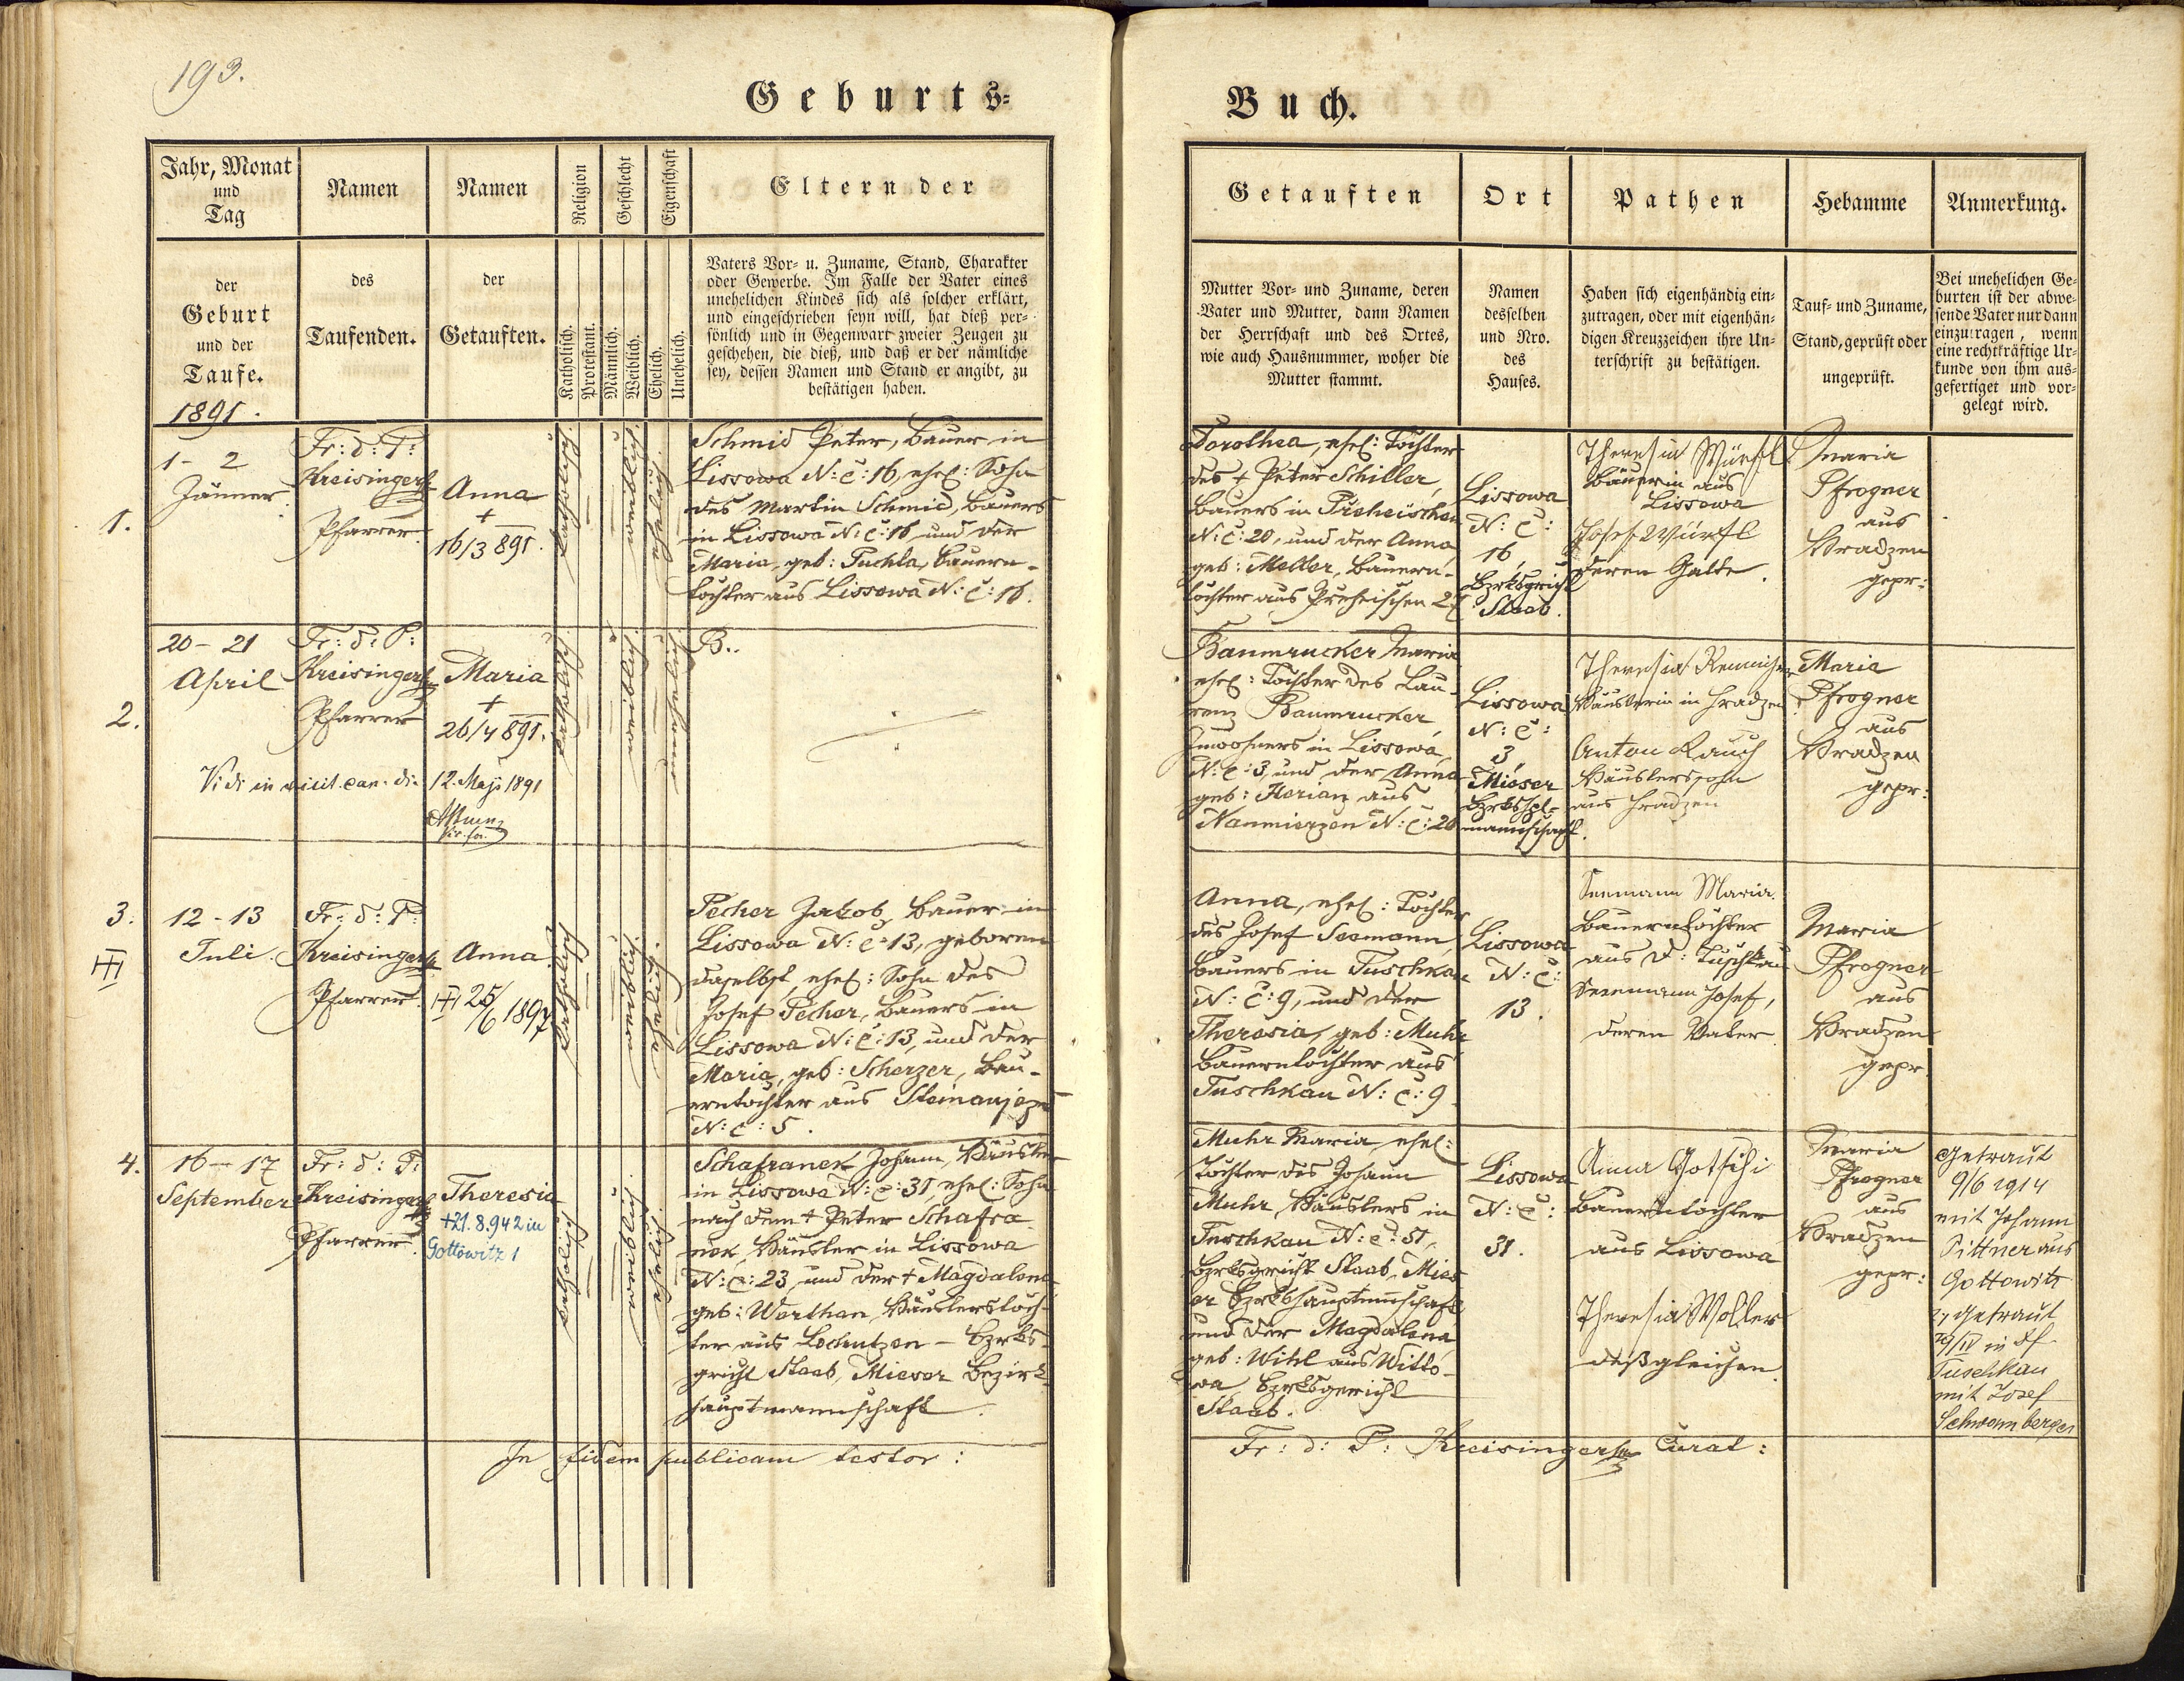 193.
Geburts=
Jahr, Monat
und
Tag
Namen
Namen
Religion
Geschlecht
Eigenschaft
Eltern der
der
Geburt
und der
Taufe.
1891.
des
Taufenden.
der
Getauften.
Katholisch.
Protestant.
Männlich.
Weiblich.
Ehelich.
Unehelich.
Vaters Vor- u. Zuname, Stand, Charakter
oder Gewerbe. Im Falle der Vater eines
unehelichen Kindes sich als solcher erklärt,
und eingeschrieben seyn will, hat dieß per-
sönlich und in Gegenwart zweier Zeugen zu
geschehen, die dieß, und daß er der nämliche
sey, dessen Namen und Stand er angibt, zu
bestätigen haben.
1.
1- 2
Jänner.
Fr: d: P:
Kreisinger
Pfarrer.
Anna
+
16/3 891.
katholisch
weiblich
ehelich
Schmid Peter, Bauer in
Lissowa N: C: 16, ehel: Sohn
des Martin Schmid, Bauers
in Lissowa N: C: 16 und der
Maria, geb: Puchla, Bauern-
tochter aus Lissowa N: C: 16.
2.
20 - 21
April
Fr: d: P:
Kreisinger
Pfarrer
Maria
+
26/4 891.
katholisch
B..
Vidi in visit. can. die 12. Maji 1891
3.
12 - 13
Juli.
Fr: d: P:
Kreisinger
Pfarrer.
Anna
25/6 1897
katholisch
Pecher Jakob, Bauer in
Lissowa N: C: 13, geboren
daselbst, ehel: Sohn des
Josef Pecher, Bauers in
Lissowa N: C: 13, und der
Maria, geb: Scherzer, Bau-
erntochter aus Steinaujezd
N: C: 5.
4.
16 - 17
September
Fr: d: P:
Kreisinger
Pfarrer.
Theresia
+21.8.942 in
Gottowitz 1
katholisch
Schafranek Johann, Häusler
in Lissowa N: C: 31, ehel: Sohn
nach dem + Peter Schafra-
nek, Häusler in Lissowa
N: C: 23, und der + Magdalena
geb: Werthan, Häuslerstoch-
ter aus Lochutzen - Bzrks-
gericht Staab, Mieser Bezirk-
hauptmannschaft.
In fidem publicam testor:
Buch.
Getauften
Ort
Pathen
Hebamme
Anmerkung.
Mutter Vor- und Zuname, deren
Vater und Mutter, dann Namen
der Herrschaft und des Ortes,
wie auch Hausnummer, woher die
Mutter stammt.
Namen
desselben
und Nro.
des
Hauses.
Haben sich eigenhändig ein-
zutragen, oder mit eigenhän-
digen Kreuzzeichen ihre Un-
terschrift zu bestätigen.
Tauf- und Zuname,
Stand, geprüft oder
ungeprüft.
Bei unehelichen Ge-
burten ist der abwe-
sende Vater nur dann
einzutragen, wenn
eine rechtkräftige Ur-
kunde von ihm aus-
gefertiget und vor-
gelegt wird.
Dorothea, ehel: Tochter
des + Peter Schiller,
Bauers in Preheischen
N: C: 20, und der Anna
geb: Meller, Bauern-
tochter aus Preheischen
Lissowa
N: C:
16,
Bzrksgricht
Staab.
Theresia Würfl
Bäuerin aus
Lissowa
Josef Würfl
deren Gatte.
Maria
Pfrogner
aus
Hradzen
gepr:
Baumrucker Maria
ehel: Tochter des Lau-
renz Baumrucker
Inwohners in Lissowa
N: C: 3, und der Anna
geb: Florian aus
N: C: 20
Lissowa
N: C:
3
Mieser
mannschaft.
Theresia
Häuslerin in Hradzen
Anton Rauch
Häuslerssohn
aus Hradzen
Maria
Pfrogner
aus
Hradzen
gepr:
Anna, ehel: Tochter
des Josef Seemann,
Bauers in Tuschkau
N: C: 9, und der
Theresia, geb: Muhr
Bauerntochter aus
Tuschkau N: C: 9
Lissowa
N: C:
13.
Seemann Maria.
Bauerntochter
aus D: Tuschkau
Seemann Josef,
deren Vater.
Maria
Pfrogner
aus
Hradzen
gepr.
Muhr Maria, ehel:
Tochter des Johann
Muhr, Häuslers in
Tuschkau N: C: 51,
Bzrksgericht Staab, Mies-
er Bzrkshauptmnschaft
und der Magdalena
geb: Wihl aus Witto-
wa Bzrksgericht
Staab.
Lissowa
N: C:
31.
Anna Gotschi
Bauerntochter
aus Lissowa
Theresia Woller
deßgleichen.
Maria
Pfrogner
aus
Hradzen
gepr:
Getraut
9/6 1914
mit Johann
Pittner aus
Gottowitz
2, Getraut
in Df
Tuschkau
mit Josef
Schwamberger
Fr: d: P: Kreisinger Curat: